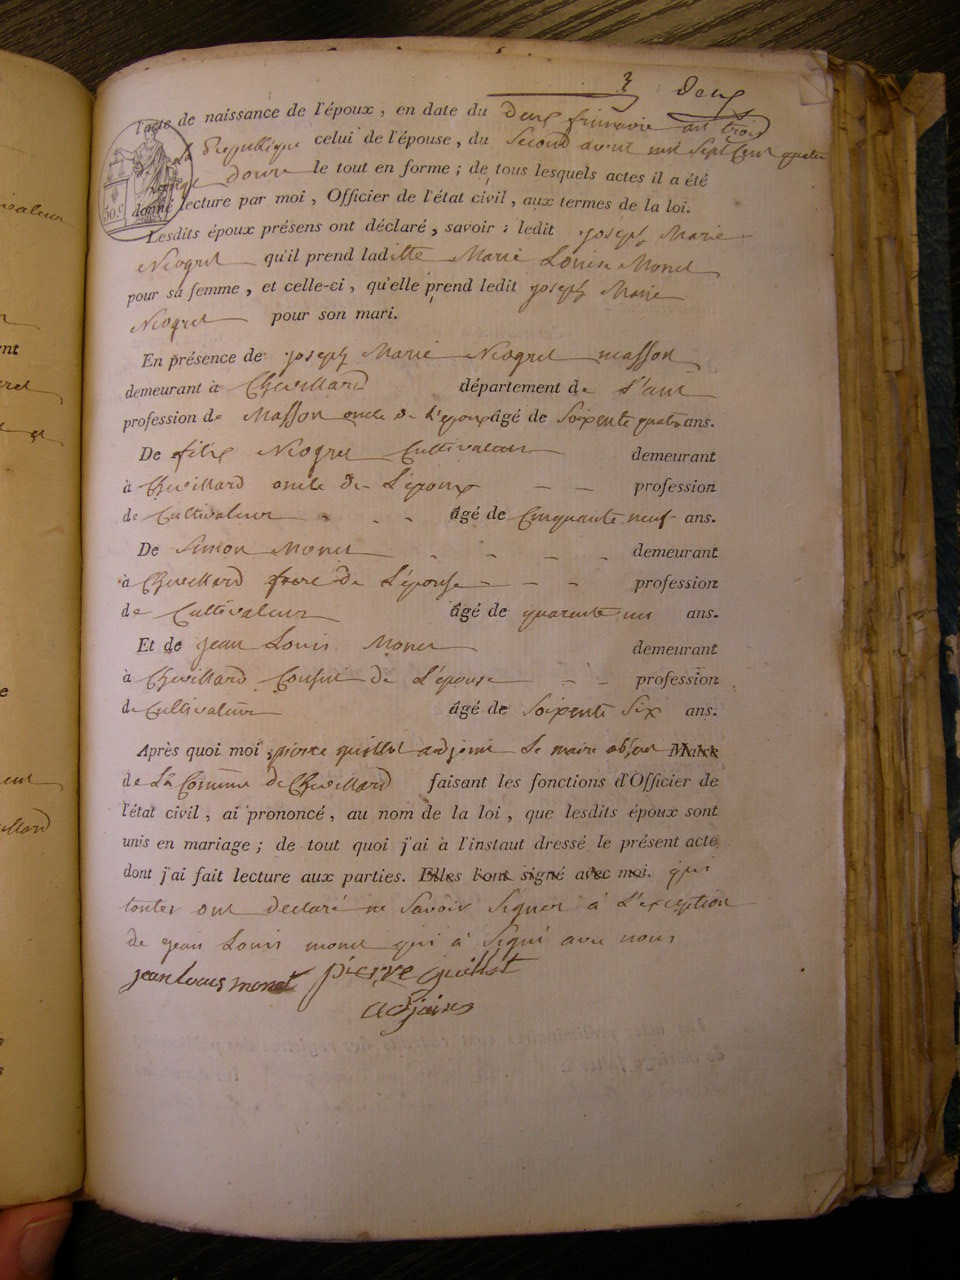 3 Deux
l'acte de naissance de l'époux, en date du Deux frimaire an trois
de la Republique celui de l'épouse, du Second avril mil Sept Cent quatre
vingt douze le tout en forme ; de tous lesquels actes il a été
donné lecture par moi, Officier de l'état civil, aux termes de la loi.
Lesdits époux présens ont déclaré, savoir : ledit joseph Marie
Neogret qu'il prend laditte Marie Louise Monet
pour sa femme, et celle-ci, qu'elle prend ledit joseph Marie
Neogret pour son mari.
En présence de joseph Marie Neogret masson
demeurant à Chevillard département de l'ain
profession de Masson oncle de L'epoux âgé de Soixente quatre ans.
De felix Neogret Cultivateur demeurant
à Chevillard oncle de L'époux profession
de Cultivateur âgé de Cinquante neuf ans.
De Simon Monet demeurant
à Chevillard frere de L'épouse profession
de Cultivateur âgé de quarente un ans.
Et de jean Louis Monet demeurant
à Chevillard Cousin de L'épouse profession
de Cultivateur âgé de Soixente Six ans.
Après quoi moi, pierre guillot adjoint le maire absent Maire
de La Commune de Chevillard faisant les fonctions d'Officier de
l'état civil, ai prononcé, au nom de la loi, que lesdits époux sont
unis en mariage ; de tout quoi j'ai à l'instaut dressé le présent acte
dont j'ai fait lecture aux parties. Elles l'ont signé avec moi. qui
toutes ont declaré ne Savoir Signer à L'exception
de jean Louis monet qui à Signé avec nous
jean louis monet pierre guillot
adjoint